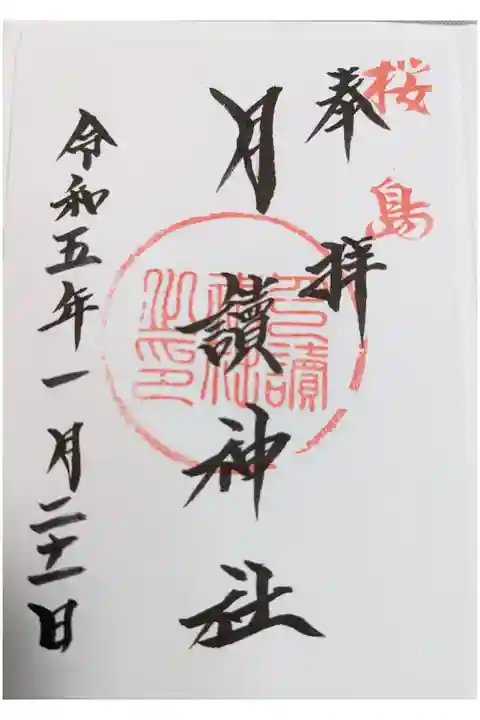 桜島
奉拝
月讀神社
月讀
神社
之印
令和五年一月二十一日